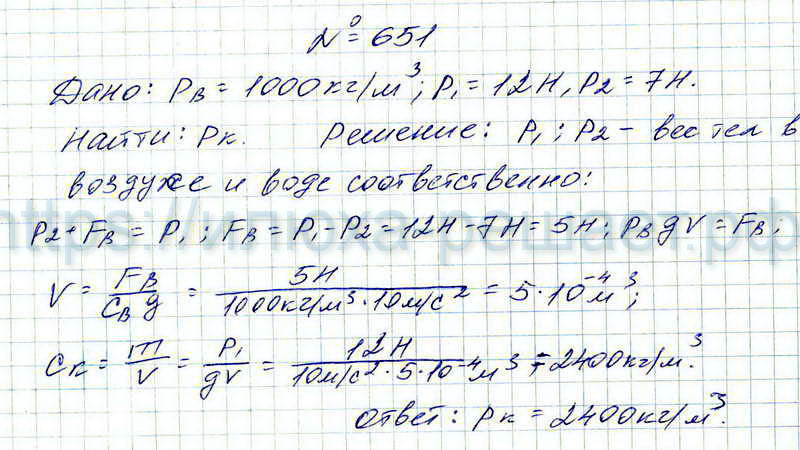 № 651
Дано: Pв = 1000кг/м³; P₁ = 12Н, P2 = 7Н.
Найти: Pк. Решение: P₁; P2 - вес тел в
воздухе и воде соответственно:
P2 + Fв = P₁; Fв = P₁ - P2 = 12Н - 7Н = 5Н; PвgV = Fв;
V = Fв/Cвg = 5Н/1000кг/м³·10м/с² = 5·10⁻⁴м³;
Cк = m/V = P₁/gV = 12Н/10м/с²·5·10⁻⁴м³ = 2400кг/м³.
Ответ: Pк = 2400кг/м³.